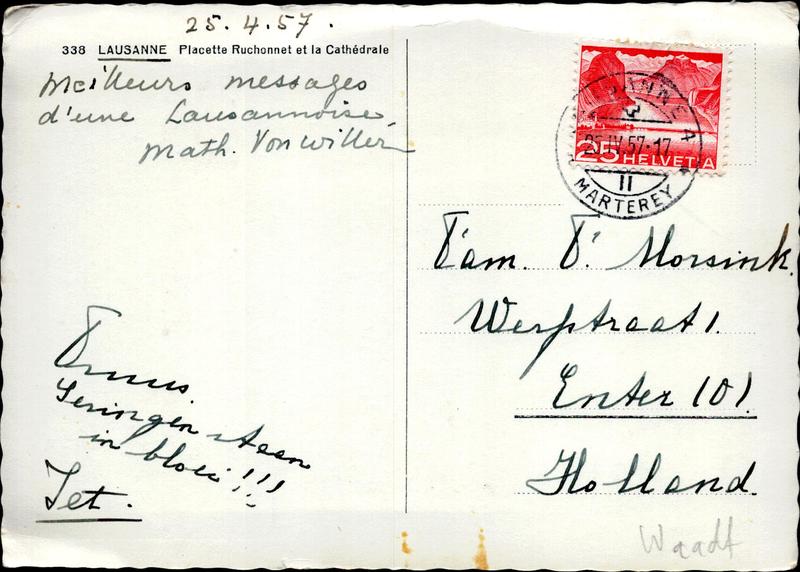 25.4.57.
338 LAUSANNE Placette Ruchonnet et la Cathédrale
Meilleurs messages
d'une Lausannoise.
Math. Vonwiller
Seringen staan
in bloei!!!
Jet.
LAUSANNE 1
25.IV.57-17
11
MARTEREY
25 HELVETIA
Fam. F. Morsink.
Werfstraat 1.
Enter (O)
Holland.
Waadt